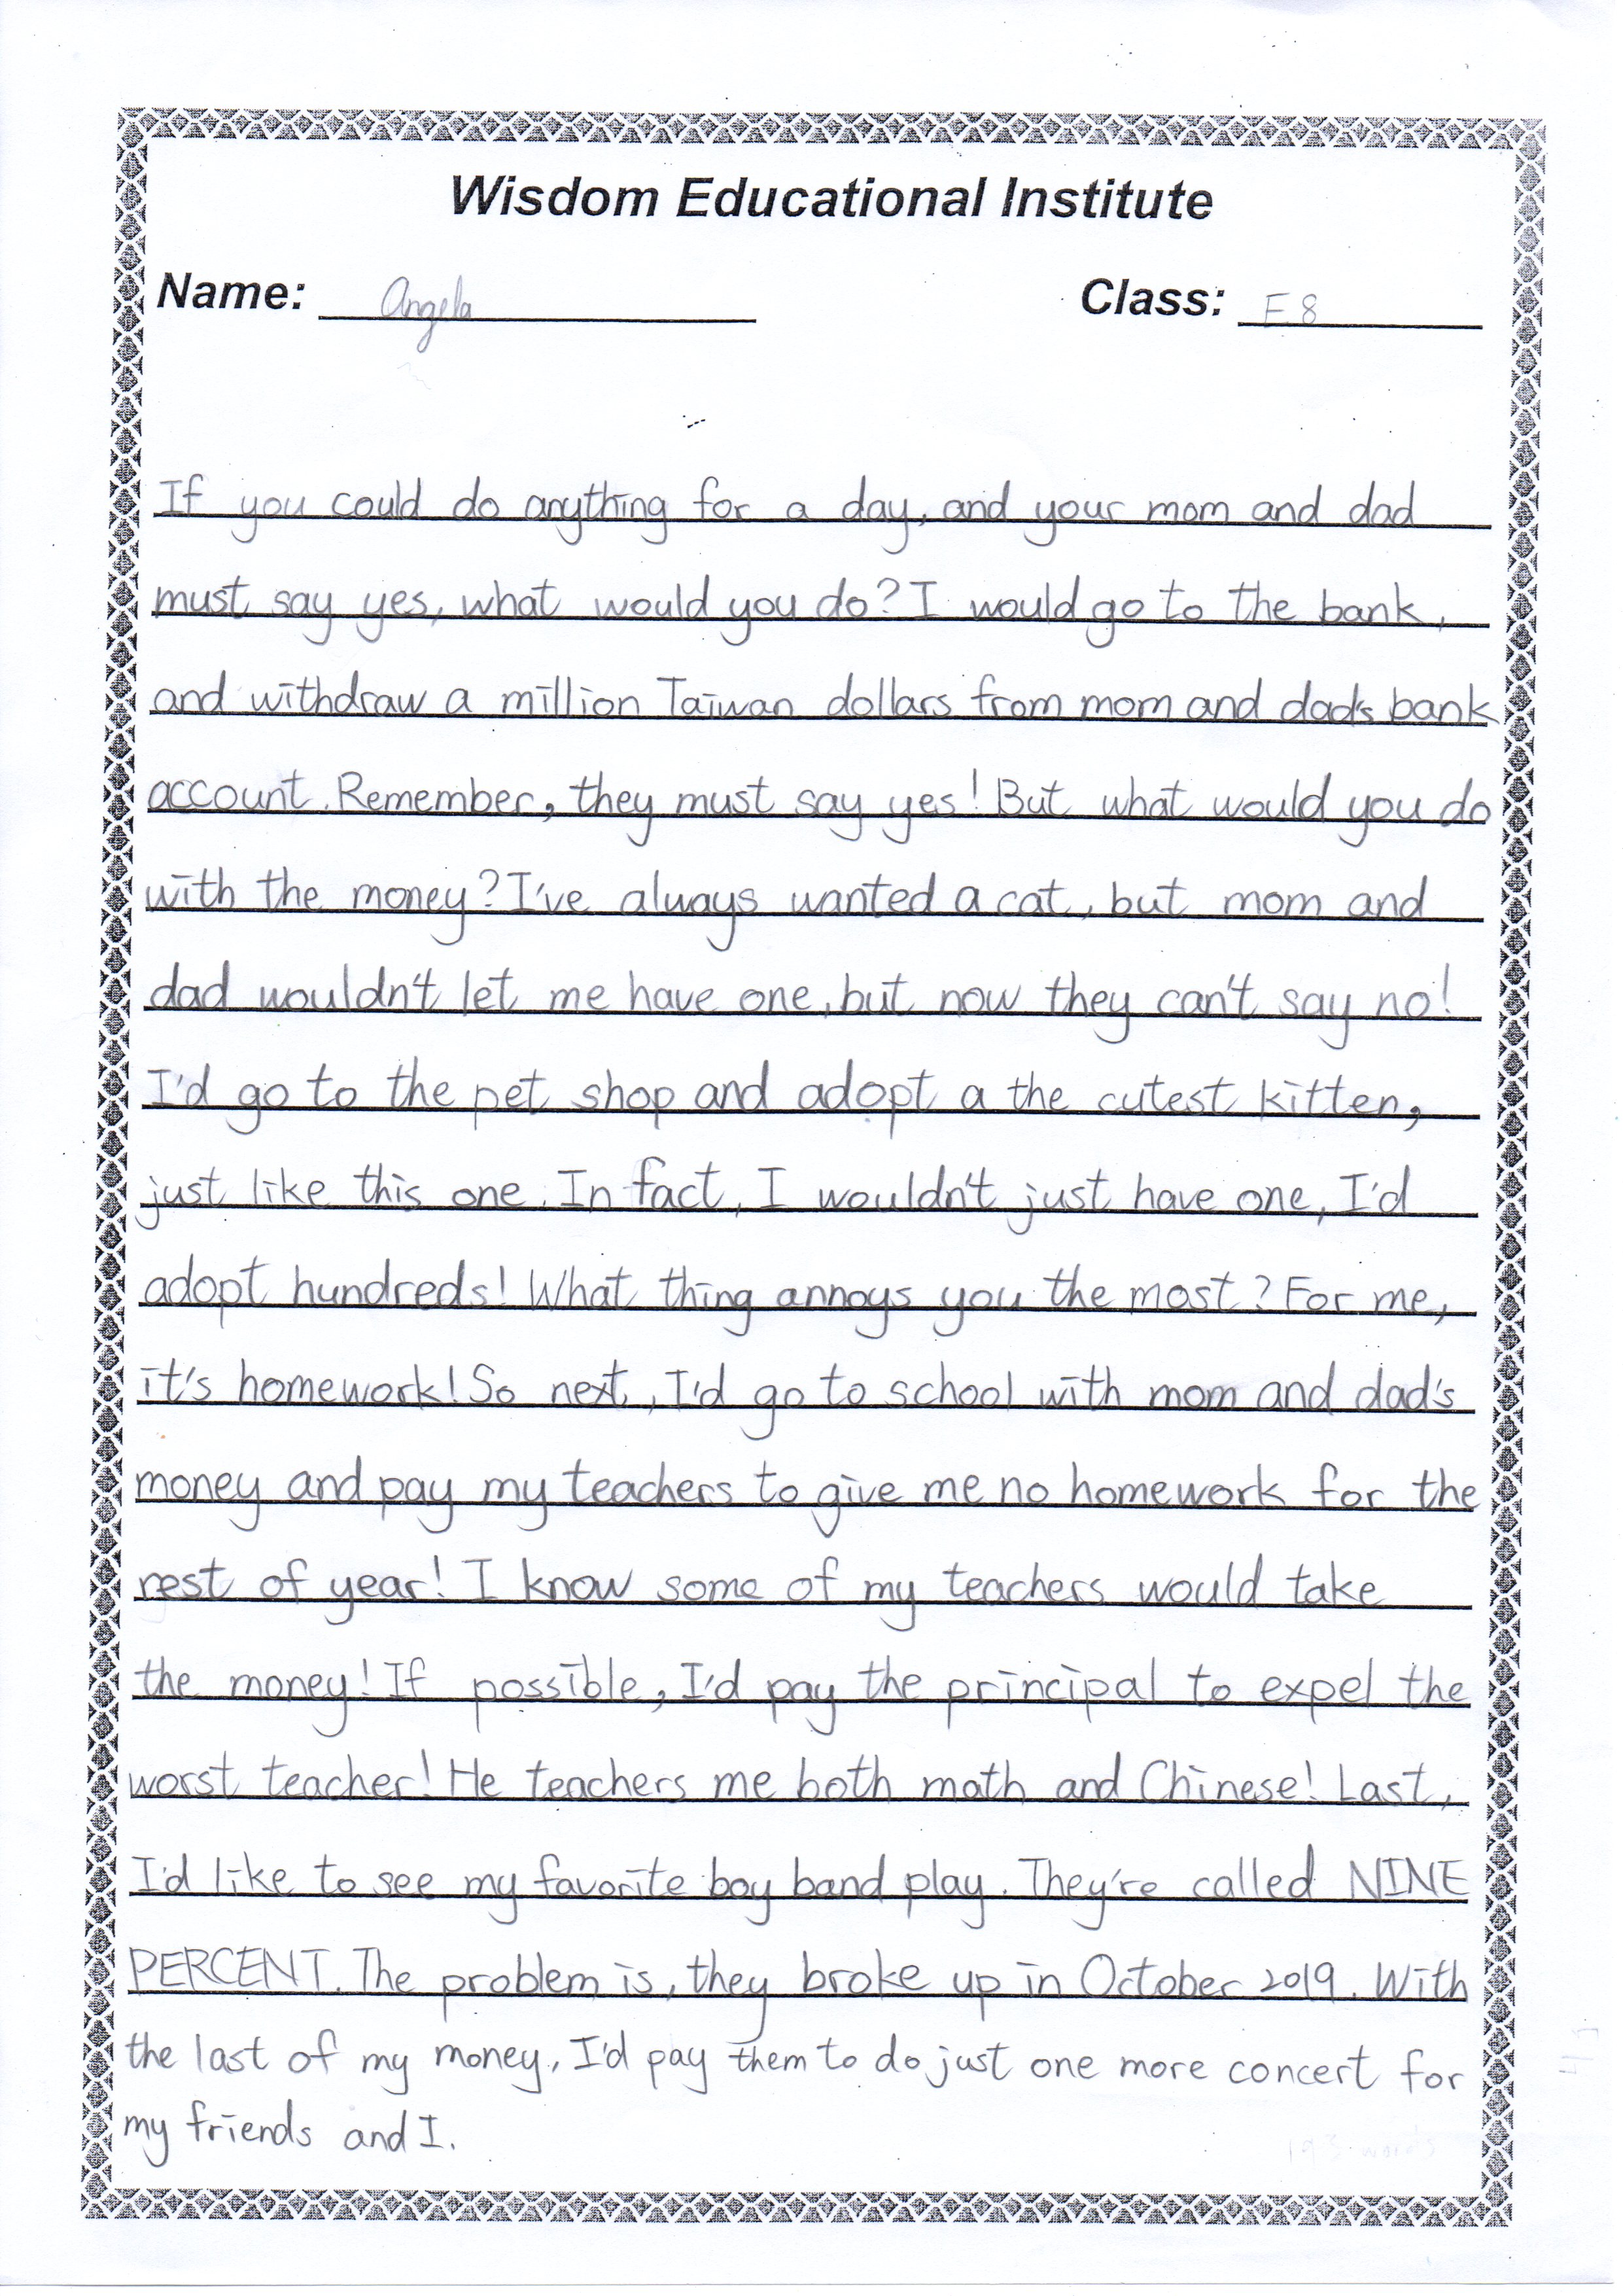 Wisdom Educational Institute
Name: Angela Class: E8
If you could do anything for a day, and your mom and dad
must say yes, what would you do? I would go to the bank,
and withdraw a million Taiwan dollars from mom and dad's bank
account. Remember, they must say yes! But what would you do
with the money? I've always wanted a cat, but mom and
dad wouldn't let me have one, but now they can't say no!
I'd go to the pet shop and adopt a the cutest kitten,
just like this one. In fact, I wouldn't just have one, I'd
adopt hundreds! What thing annoys you the most? For me,
it's homework! So next, I'd go to school with mom and dad's
money and pay my teachers to give me no homework for the
rest of year! I know some of my teachers would take
the money! If possible, I'd pay the principal to expel the
worst teacher! He teachers me both math and Chinese! Last,
I'd like to see my favorite boy band play. They're called NINE
PERCENT. The problem is, they broke up in October 2019. With
the last of my money, I'd pay them to do just one more concert for
my friends and I.
193 words